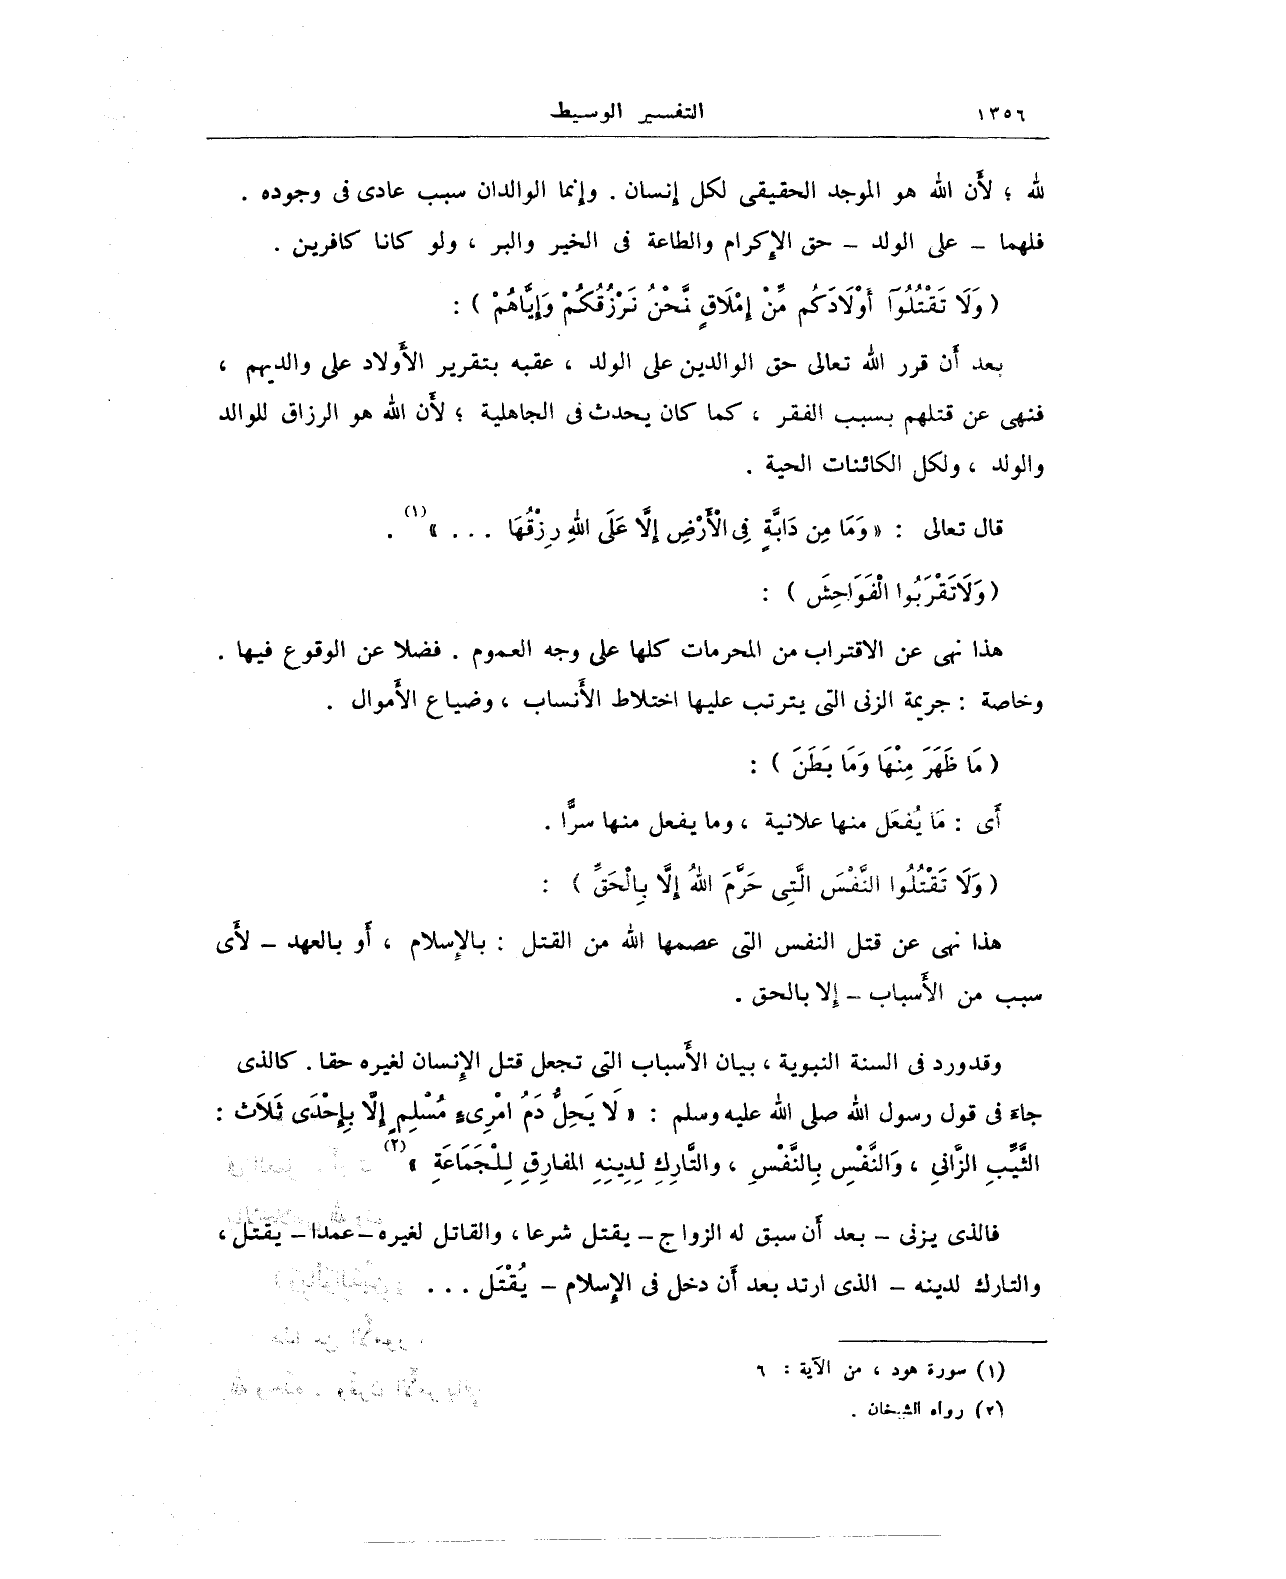 ١٣٥٦
التفسير الوسيط
لله ؛ لأَن الله هو الموجد الحقيقى لكل إنسان . وإنما الوالدان سبب عادى فى وجوده .
فلهما – على الولد – حق الإكرام والطاعة فى الخير والبر ، ولو كانا كافرين .
( وَلَا تَقْتُلُوٓا أَوْلَادَكُم مِّنْ إِمْلَاقٍ نَّحْنُ نَرْزُقُكُمْ وَإِيَّاهُمْ ) :
بعد أَن قرر الله تعالى حق الوالدين على الولد ، عقبه بتقرير الأَولاد على والديهم ،
فنهى عن قتلهم بسبب الفقر ، كما كان يحدث فى الجاهلية ؛ لأَن الله هو الرزاق للوالد
والولد ، ولكل الكائنات الحية .
قال تعالى : « وَمَا مِن دَابَّةٍ فِى الْأَرْضِ إِلَّا عَلَى اللهِ رِزْقُهَا . . . »(١) .
( وَلَا تَقْرَبُوا الْفَوَاحِشَ ) :
هذا نهى عن الاقتراب من المحرمات كلها على وجه العموم . فضلا عن الوقوع فيها .
وخاصة : جريمة الزنى التى يترتب عليها اختلاط الأَنساب ، وضياع الأَموال .
( مَا ظَهَرَ مِنْهَا وَمَا بَطَنَ ) :
أَى : مَا يُفعَل منها علانية ، وما يفعل منها سرًّا .
( وَلَا تَقْتُلُوا النَّفْسَ الَّتِى حَرَّمَ اللهُ إِلَّا بِالْحَقِّ ) :
هذا نهى عن قتل النفس التى عصمها الله من القتل : بالإسلام ، أَو بالعهد – لأَى
سبب من الأَسباب – إلا بالحق .
وقدورد فى السنة النبوية ، بيان الأَسباب التى تجعل قتل الإنسان لغيره حقا . كالذى
جاءَ فى قول رسول الله صلى الله عليه وسلم : « لَا يَحِلُّ دَمُ امْرِىءٍ مُسْلِمٍ إِلَّا بِإِحْدَى ثَلَاث :
الثَّيِّبِ الزَّانِى ، وَالنَّفْسِ بِالنَّفْسِ ، والتَّارِكِ لِدِينِهِ المفَارِقِ لِلْجَمَاعَةِ »(٢)
فالذى يزنى – بعد أَن سبق له الزواج – يقتل شرعا ، والقاتل لغيره – عمدا – يقتل ،
والتارك لدينه – الذى ارتد بعد أَن دخل فى الإسلام – يُقْتَل . . .
(١) سورة هود ، من الآية : ٦
(٢) رواه الشيخان .